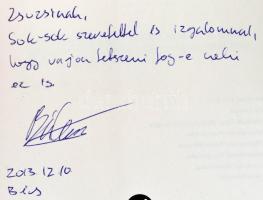 Zsuzsinak,
Sok-sok szeretettel és izgalommal,
hogy vajon tetszeni fog-e neki
ez is.
2013 12 10
Bécs